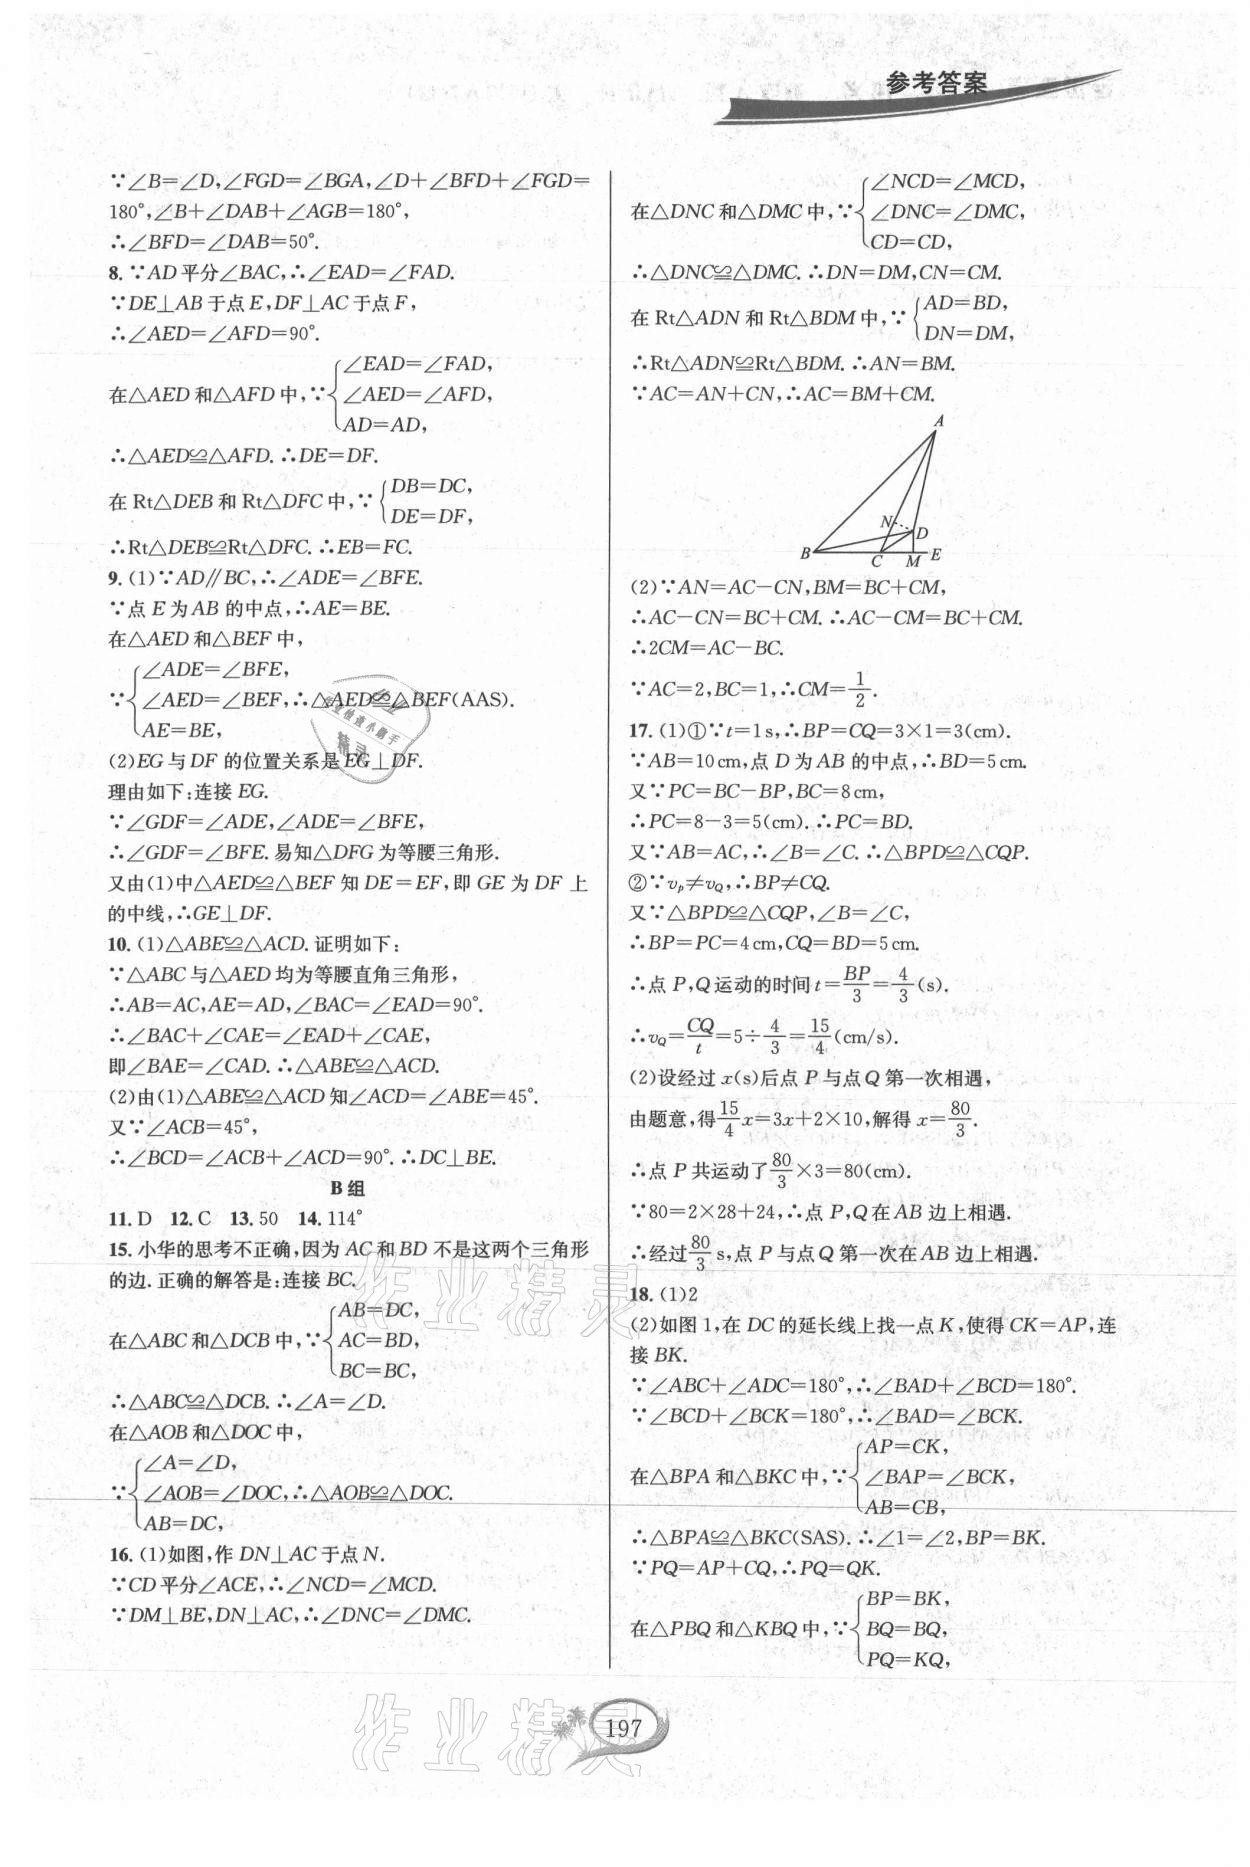 参考答案
∵∠B=∠D,∠FGD=∠BGA,∠D+∠BFD+∠FGD=
180°,∠B+∠DAB+∠AGB=180°,
∴∠BFD=∠DAB=50°.
8. ∵AD平分∠BAC,∴∠EAD=∠FAD.
∵DE⊥AB于点E,DF⊥AC于点F,
∴∠AED=∠AFD=90°.
在△AED和△AFD中,∵{∠EAD=∠FAD,
∠AED=∠AFD,
AD=AD,
∴△AED≌△AFD. ∴DE=DF.
在Rt△DEB和Rt△DFC中,∵{DB=DC,
DE=DF,
∴Rt△DEB≌Rt△DFC. ∴EB=FC.
9. (1)∵AD∥BC,∴∠ADE=∠BFE.
∵点E为AB的中点,∴AE=BE.
在△AED和△BEF中,
∵{∠ADE=∠BFE,
∠AED=∠BEF,∴△AED≌△BEF(AAS).
AE=BE,
(2)EG与DF的位置关系是EG⊥DF.
理由如下:连接EG.
∵∠GDF=∠ADE,∠ADE=∠BFE,
∴∠GDF=∠BFE.易知△DFG为等腰三角形.
又由(1)中△AED≌△BEF知DE=EF,即GE为DF上
的中线,∴GE⊥DF.
10. (1)△ABE≌△ACD.证明如下:
∵△ABC与△AED均为等腰直角三角形,
∴AB=AC,AE=AD,∠BAC=∠EAD=90°.
∴∠BAC+∠CAE=∠EAD+∠CAE,
即∠BAE=∠CAD. ∴△ABE≌△ACD.
(2)由(1)△ABE≌△ACD知∠ACD=∠ABE=45°.
又∵∠ACB=45°,
∴∠BCD=∠ACB+∠ACD=90°. ∴DC⊥BE.
B组
11. D 12. C 13. 50 14. 114°
15. 小华的思考不正确,因为AC和BD不是这两个三角形
的边.正确的解答是:连接BC.
在△ABC和△DCB中,∵{AB=DC,
AC=BD,
BC=BC,
∴△ABC≌△DCB. ∴∠A=∠D.
在△AOB和△DOC中,
∵{∠A=∠D,
∠AOB=∠DOC,∴△AOB≌△DOC.
AB=DC,
16. (1)如图,作DN⊥AC于点N.
∵CD平分∠ACE,∴∠NCD=∠MCD.
∵DM⊥BE,DN⊥AC,∴∠DNC=∠DMC.
在△DNC和△DMC中,∵{∠NCD=∠MCD,
∠DNC=∠DMC,
CD=CD,
∴△DNC≌△DMC. ∴DN=DM,CN=CM.
在Rt△ADN和Rt△BDM中,∵{AD=BD,
DN=DM,
∴Rt△ADN≌Rt△BDM. ∴AN=BM.
∵AC=AN+CN,∴AC=BM+CM.
A
N
D
B
C
M
E
(2)∵AN=AC−CN,BM=BC+CM,
∴AC−CN=BC+CM. ∴AC−CM=BC+CM.
∴2CM=AC−BC.
∵AC=2,BC=1,∴CM=1/2.
17. (1)①∵t=1s,∴BP=CQ=3×1=3(cm).
∵AB=10cm,点D为AB的中点,∴BD=5cm.
又∵PC=BC−BP,BC=8cm,
∴PC=8−3=5(cm). ∴PC=BD.
又∵AB=AC,∴∠B=∠C. ∴△BPD≌△CQP.
②∵vₚ≠v_Q,∴BP≠CQ.
又∵△BPD≌△CQP,∠B=∠C,
∴BP=PC=4cm,CQ=BD=5cm.
∴点P,Q运动的时间t=BP/3=4/3(s).
∴v_Q=CQ/t=5÷4/3=15/4(cm/s).
(2)设经过x(s)后点P与点Q第一次相遇,
由题意,得15/4x=3x+2×10,解得x=80/3.
∴点P共运动了80/3×3=80(cm).
∵80=2×28+24,∴点P,Q在AB边上相遇.
∴经过80/3s,点P与点Q第一次在AB边上相遇.
18. (1)2
(2)如图1,在DC的延长线上找一点K,使得CK=AP,连
接BK.
∵∠ABC+∠ADC=180°,∴∠BAD+∠BCD=180°.
∵∠BCD+∠BCK=180°,∴∠BAD=∠BCK.
在△BPA和△BKC中,∵{AP=CK,
∠BAP=∠BCK,
AB=CB,
∴△BPA≌△BKC(SAS). ∴∠1=∠2,BP=BK.
∵PQ=AP+CQ,∴PQ=QK.
在△PBQ和△KBQ中,∵{BP=BK,
BQ=BQ,
PQ=KQ,
作业精灵
作业精灵
197